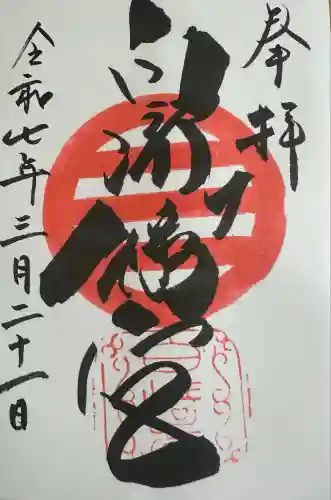 奉拝
八幡宮
令和七年三月二十一日